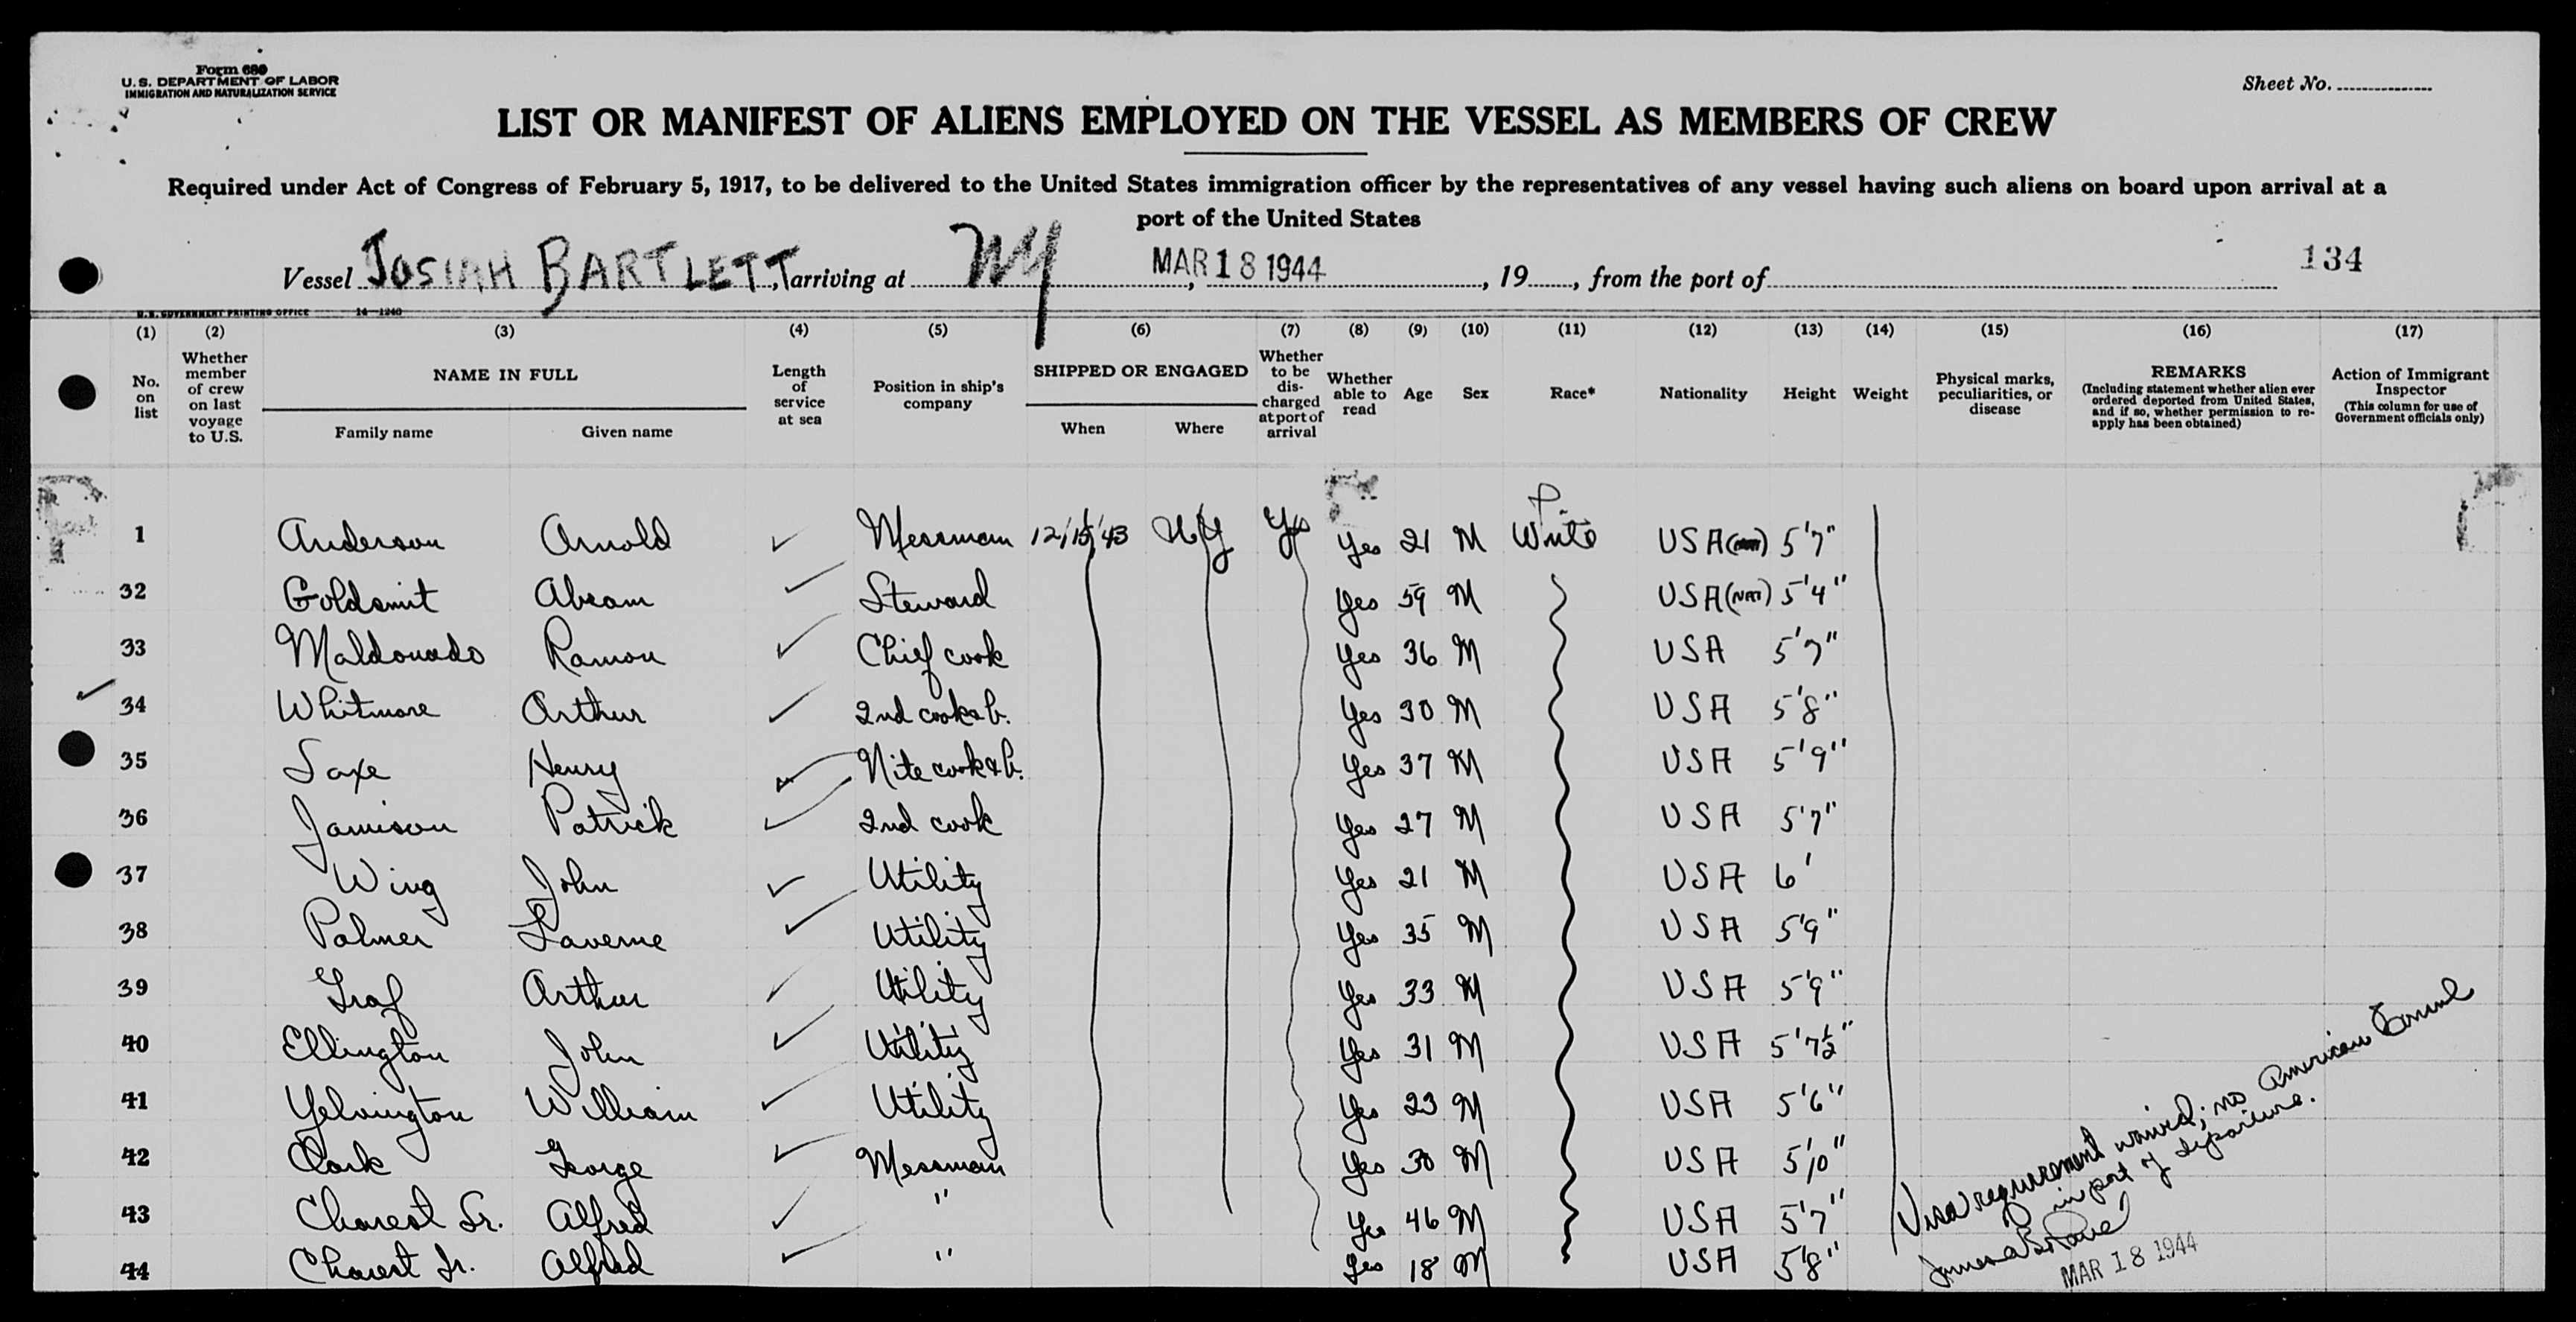 Form 680
U.S. DEPARTMENT OF LABOR
IMMIGRATION AND NATURALIZATION SERVICE
Sheet No.
LIST OR MANIFEST OF ALIENS EMPLOYED ON THE VESSEL AS MEMBERS OF CREW
Required under Act of Congress of February 5, 1917, to be delivered to the United States immigration officer by the representatives of any vessel having such aliens on board upon arrival at a
port of the United States
Vessel JOSIAH BARTLETT, arriving at NY, MAR 18 1944, 19, from the port of
134
U.S. GOVERNMENT PRINTING OFFICE 14—1240
(1) (2) (3) (4) (5) (6) (7) (8) (9) (10) (11) (12) (13) (14) (15) (16) (17)
No. on list
Whether member of crew on last voyage to U.S.
NAME IN FULL
Family name Given name
Length of service at sea
Position in ship's company
SHIPPED OR ENGAGED
When Where
Whether to be discharged at port of arrival
Whether able to read
Age
Sex
Race*
Nationality
Height
Weight
Physical marks, peculiarities, or disease
REMARKS
(Including statement whether alien ever ordered deported from United States, and if so, whether permission to re-apply has been obtained)
Action of Immigrant Inspector
(This column for use of Government officials only)
1 Anderson Arnold ✓ Messman 12/15/43 NY Yes Yes 21 M White USA 5'7"
32 Goldsmit Abram ✓ Steward Yes 59 M USA (NAT) 5'4"
33 Maldonado Ramon ✓ Chief cook Yes 36 M USA 5'7"
34 Whitmore Arthur ✓ 2nd cook & b. Yes 30 M USA 5'8"
35 Saxe Henry ✓ Nite cook & b. Yes 37 M USA 5'9"
36 Jamison Patrick ✓ 2nd cook Yes 27 M USA 5'7"
37 Wing John ✓ Utility Yes 21 M USA 6'
38 Palmer Laverne ✓ Utility Yes 35 M USA 5'9"
39 Graf Arthur ✓ Utility Yes 33 M USA 5'9"
40 Ellington John ✓ Utility Yes 31 M USA 5'7½"
41 Yelvington William ✓ Utility Yes 23 M USA 5'6"
42 Clark George ✓ Messman Yes 30 M USA 5'10"
43 Charest Sr. Alfred ✓ " Yes 46 M USA 5'7"
44 Charest Jr. Alfred ✓ " Yes 18 M USA 5'8"
Visa requirement waived; no American Consul
in port of departure.
MAR 18 1944